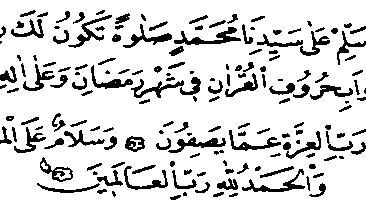 سَلِّمْ عَلٰى سَيِّدِنَا مُحَمَّدٍ صَلٰوةً تَكُوْنُ لَكَ
بِحُرُوْفِ الْقُرْاٰنِ فِىْ شَهْرِ رَمَضَانَ وَعَلٰى اٰلِهٖ
رَبِّ الْعِزَّةِ عَمَّا يَصِفُوْنَ وَسَلَامٌ عَلَى
وَالْحَمْدُ لِلّٰهِ رَبِّ الْعَالَمِيْنَ